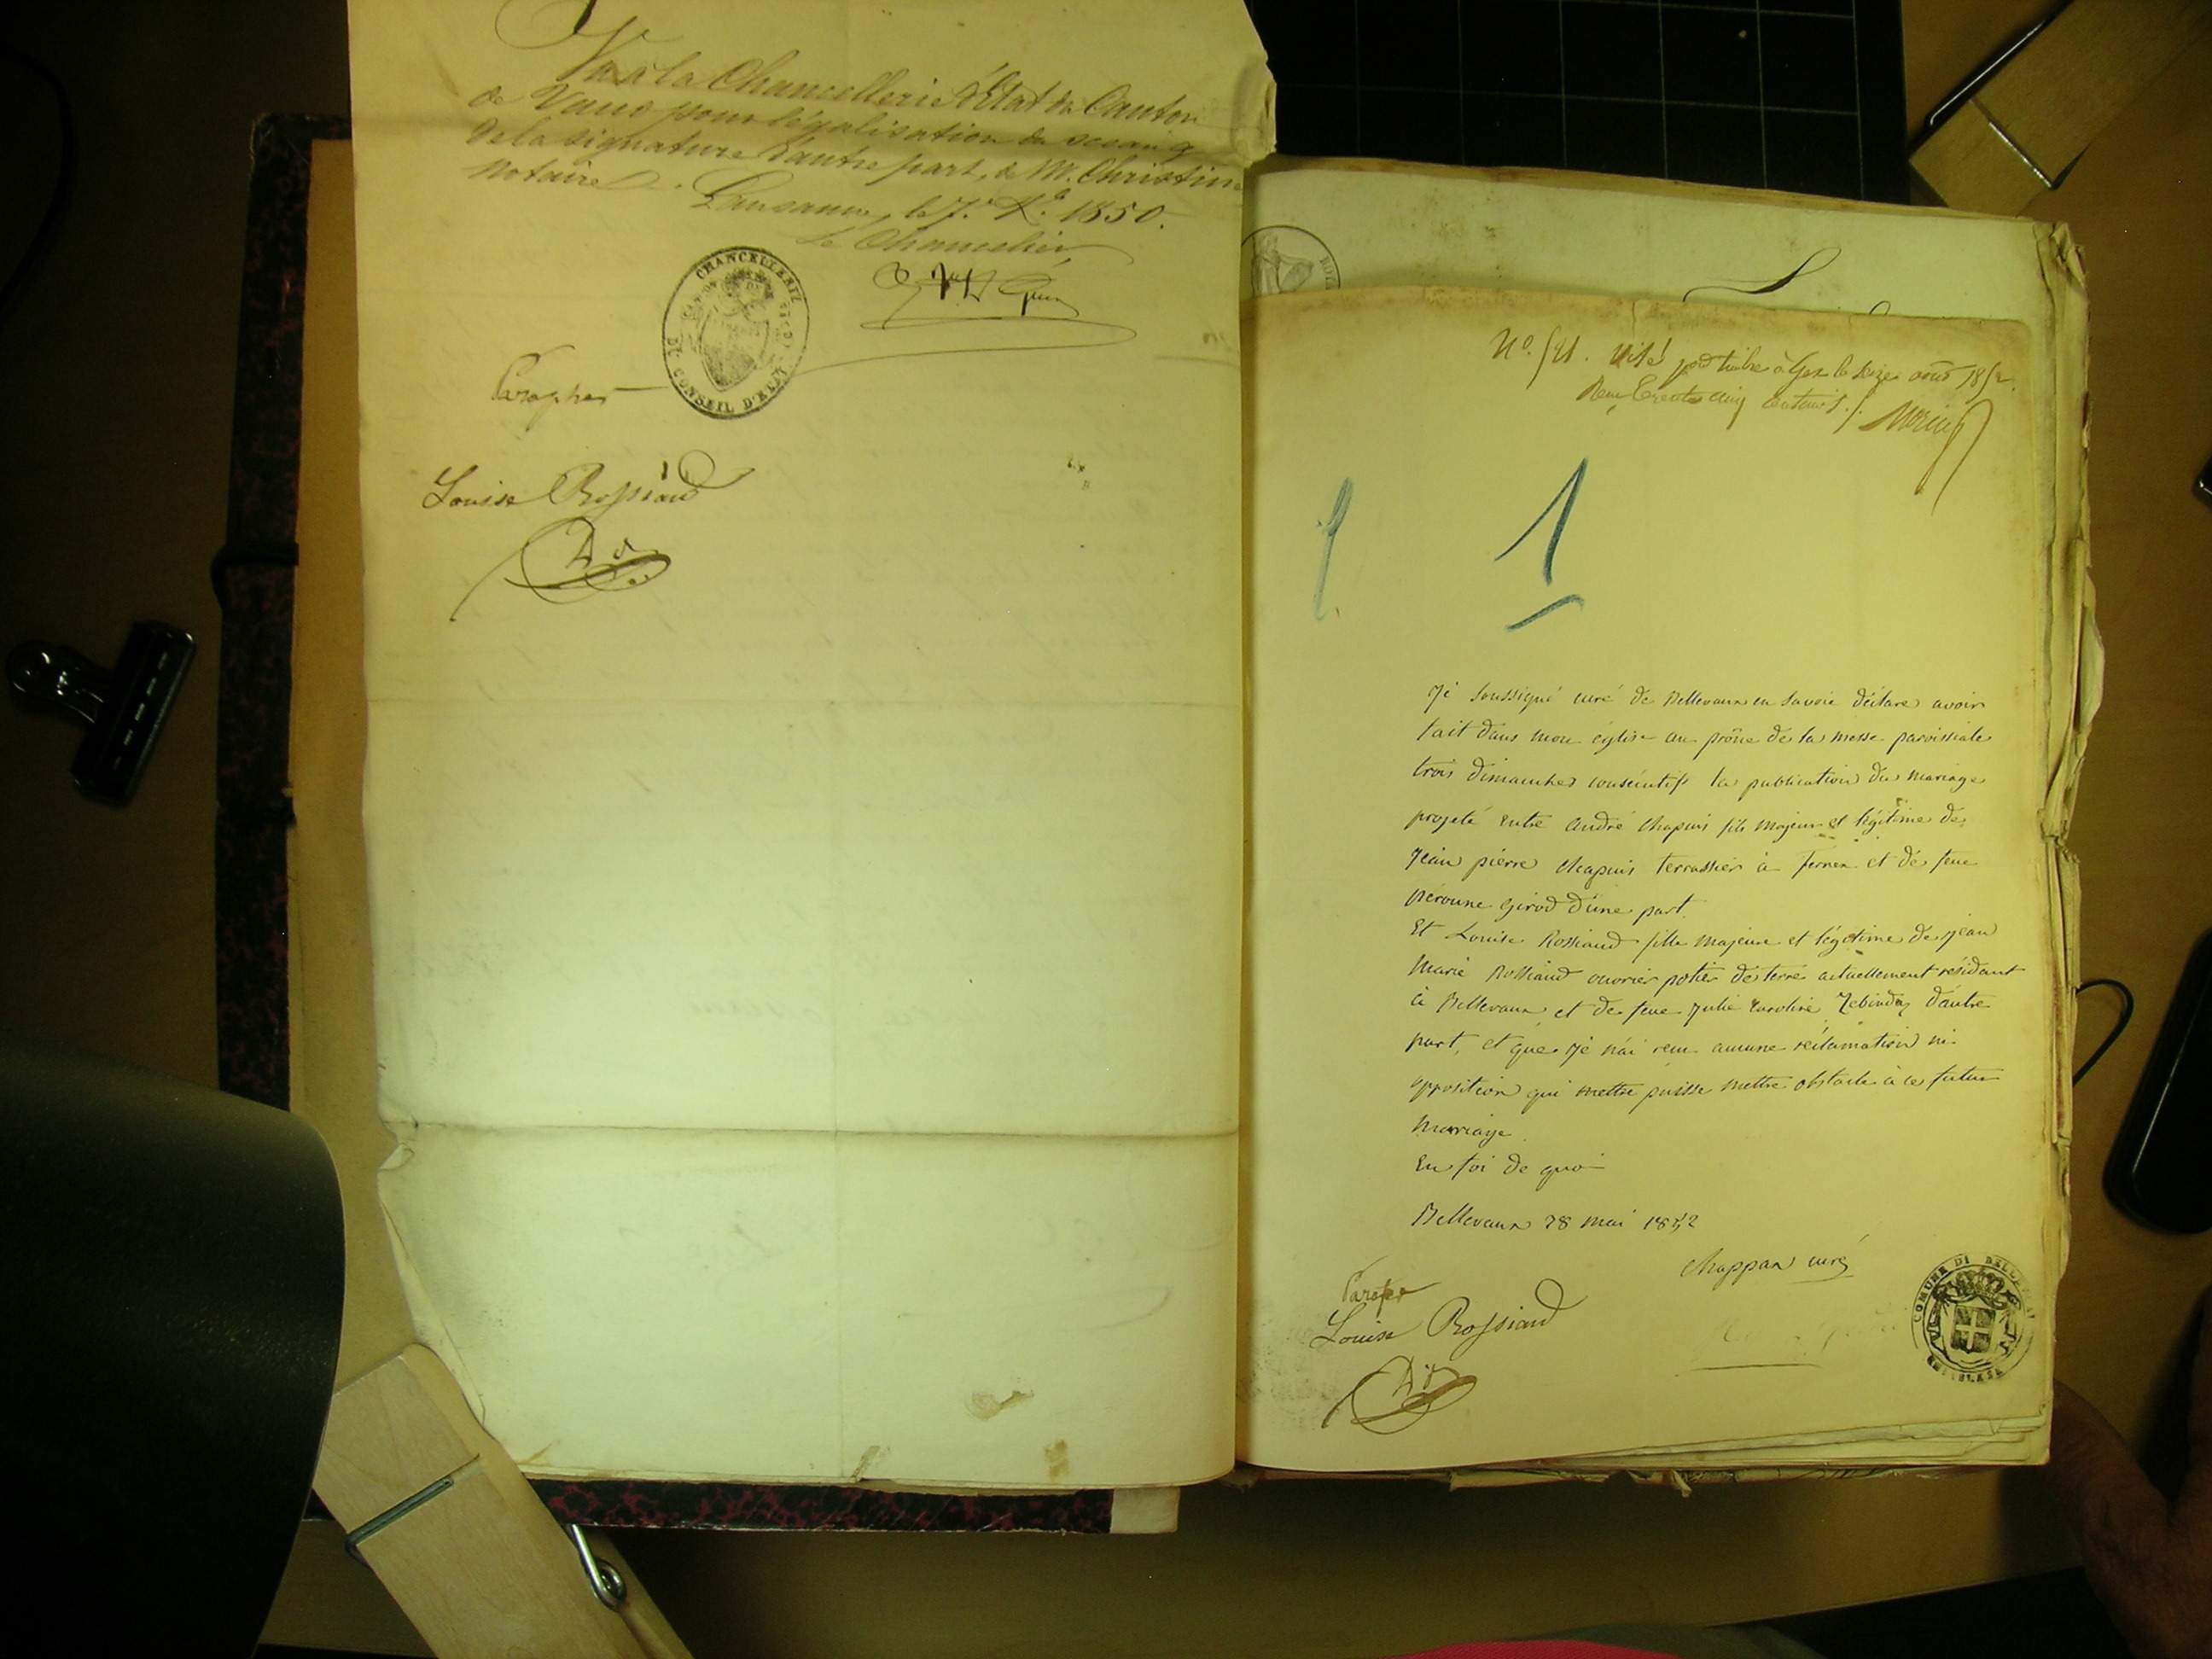 Vu à la Chancellerie d'État du Canton
de Vaud pour légalisation du sceau &
de la signature d'autre part, de M. Christin
notaire.
Lausanne, le 7. X.e 1850.
Le Chancelier,
CHANCELLERIE
DU CONSEIL D'ETAT
Parapher
Louise Rossiaud
N°. 521. Visé pour timbre à Gex le seize août 1852.
Reçu trente cinq centimes.
1
Je soussigné curé de Bellevaux en Savoie déclare avoir
fait dans mon église au prône de la messe paroissiale
trois dimanches consécutifs la publication du mariage
projeté entre andré Chapuis fils majeur et légitime de
Jean pierre Chapuis terrassier à fernex et de feue
péronne Girod d'une part.
Et Louise Rossiaud fille majeure et légitime de jean
Marie Rossiaud ouvrier potier de terre actuellement résidant
à Bellevaux et de feue Julie Caroline d'autre
part, et que je n'ai reçu aucune réclamation ni
opposition qui mettre puisse mettre obstacle à ce futur
marriage
En foi de quoi
Bellevaux 28 mai 1852
Chappaz curé
Louise Rossiaud
COMUNE DI